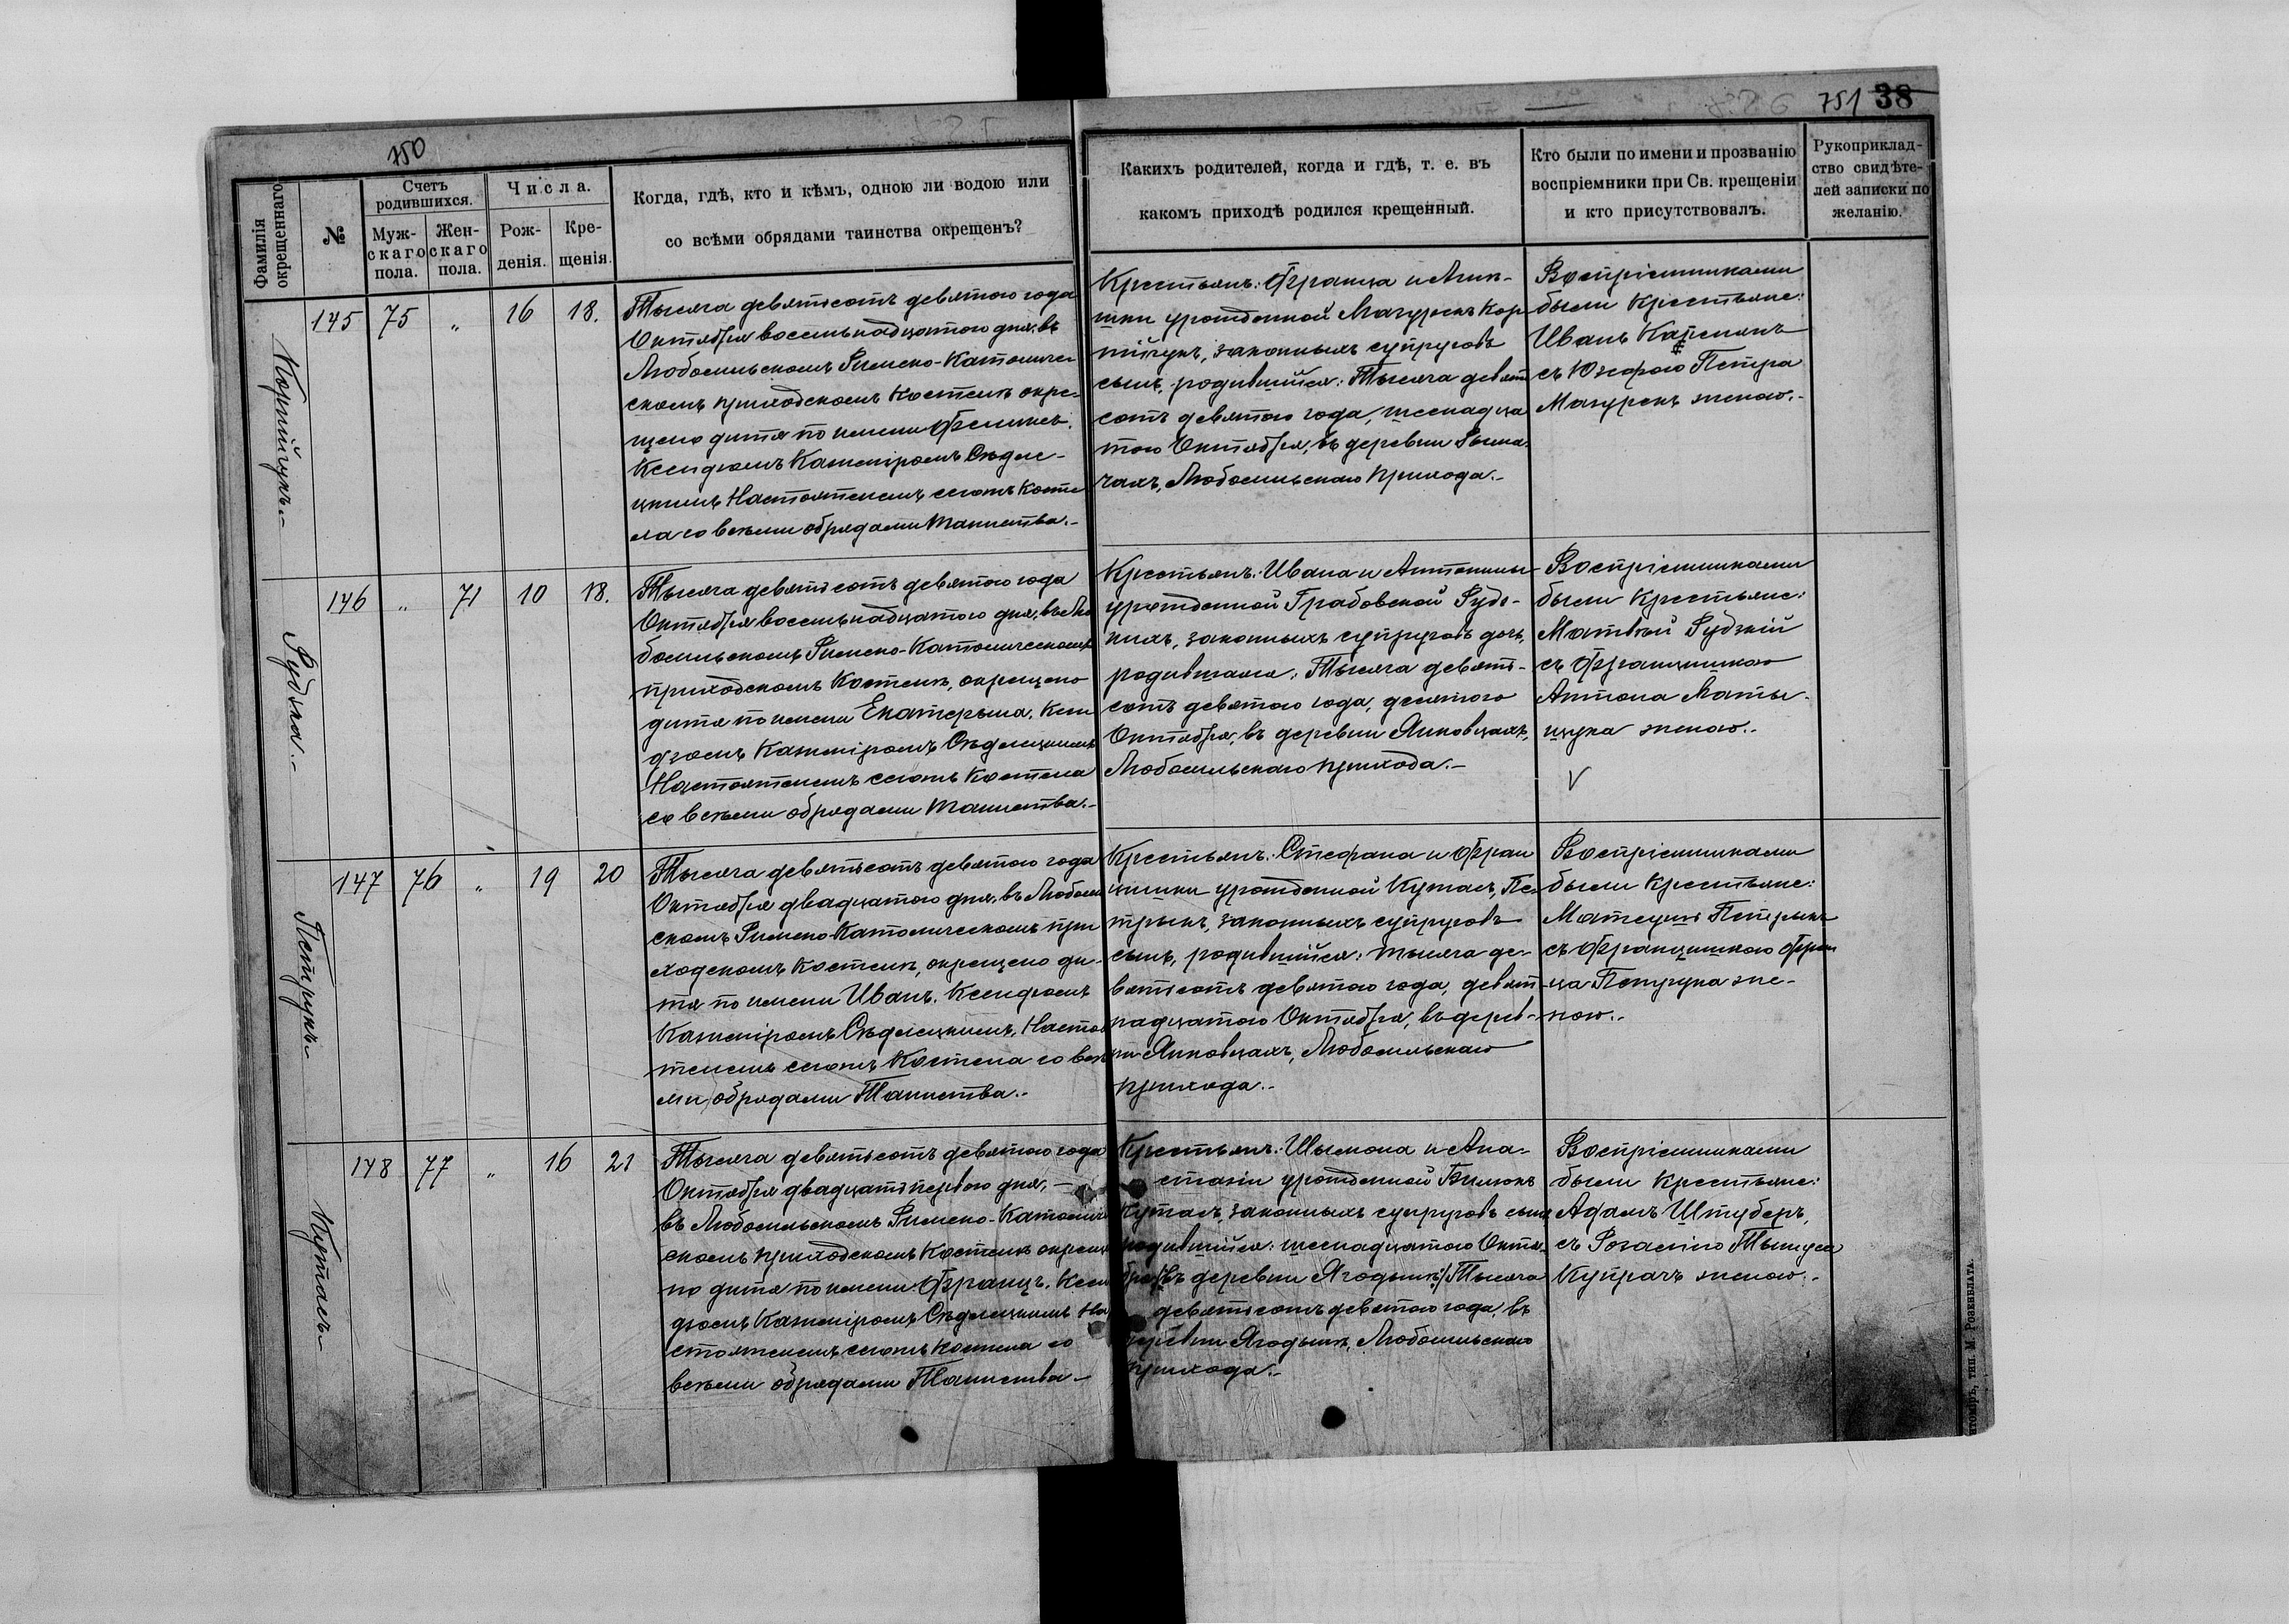 750
751 38
Фамилія окрещеннаго
№
Счетъ родившихся.
Муж-скаго пола.
Жен-скаго пола.
Числа.
Рож-денія.
Кре-щенія.
Когда, гдѣ, кто и кѣмъ, одною ли водою или
со всѣми обрядами таинства окрещенъ?
Какихъ родителей, когда и гдѣ, т. е. въ
какомъ приходѣ родился крещенный.
Кто были по имени и прозванію
воспріемники при Св. крещеніи
и кто присутствовалъ.
Рукоприклад-
ство свидѣте-
лей записки по
желанію.
145 75 „ 16 18.
Тысяча девятьсотъ девятого года
Октября восемьнадцатого дня, въ
Любомльскомъ Римско-Католиче-
скомъ приходскомъ Костелѣ окре-
щено дитя по имени Феликсъ.
Ксендзомъ Казиміромъ Сѣдле-
цкимъ Настоятелемъ сегожъ Косте
ла со всѣми обрядами Таинства.-
Крестьянъ: Франца и
урожденной Мазурекъ
законныхъ супруговъ
сынъ, родившійся: Тысяча девять
сотъ девятого года, шеснадца
того Октября, въ деревни Рыма
чахъ, Любомльскаго прихода.-
Воспріемниками
были Крестьяне:
Иванъ
съ Юзефою Петра
Мазурекъ женою.-
146 „ 71 10 18.
Рудзка.-
Тысяча девятьсотъ девятого года
Октября восемьнадцатого дня, въ Лю
бомльскомъ Римско-Католическомъ
приходскомъ Костелѣ, окрещено
дитя по имени Екатерына. Ксен
дзомъ Казиміромъ Сѣдлецкимъ
Настоятелемъ сегожъ Костела
со всѣми обрядами Таинства.-
Крестьянъ: Ивана и Антонины
урожденной Грабовской Рудз-
кихъ, законныхъ супруговъ дочь,
родившаяся: Тысяча девять-
сотъ девятого года, десятого
Октября, въ деревни Янковцахъ,
Любомльскаго прихода.-
Воспріемниками
были Крестьяне:
Матвѣй Рудзкій
съ Францишкою
Антона
женою.-
147 76 „ 19 20
Петрукъ.-
Тысяча девятьсотъ девятого года
Октября двадцатого дня, въ Любомль
скомъ Римско-Католическомъ при
ходскомъ Костелѣ, окрещено ди-
тя по имени Иванъ. Ксендзомъ
Казиміромъ Сѣдлецкимъ, Настоя
телемъ сегожъ Костела со всѣ
ми обрядами Таинства.-
Крестьянъ: Стефана и Фран
цишки урожденной Куталъ, Пе-
законныхъ супруговъ
сынъ, родившійся: тысяча де-
вятьсотъ девятого года, девят
надцатого Октября, въ дерев-
ни Янковцахъ, Любомльскаго
прихода.-
Воспріемниками
были Крестьяне:
съ Францишкою Фран
ца Петрука же-
ною.-
148 77 „ 16 21
Куталъ.-
Тысяча девятьсотъ девятого года
Октября двадцать первого дня,-
въ Любомльскомъ Римско-Католиче
скомъ приходскомъ Костелѣ окреще
но дитя по имени Францъ. Ксен
дзомъ Казиміромъ Сѣдлецкимъ На
стоятелемъ сегожъ Костела со
всѣми обрядами Таинства.-
Крестьянъ: Шымона и Ана-
стазіи урожденной Билюкъ
Куталъ, законныхъ супруговъ сынъ
родившійся: шеснадцатого Октя
бря /:въ деревни Ягодынѣ:/ Тысяча
девятьсотъ девятого года, въ
деревни Ягодынѣ, Любомльскаго
прихода.-
Воспріемниками
были Крестьяне:
Адамъ Штуберъ,
съ Розалією
женою.-
тип. М. Розенблата.